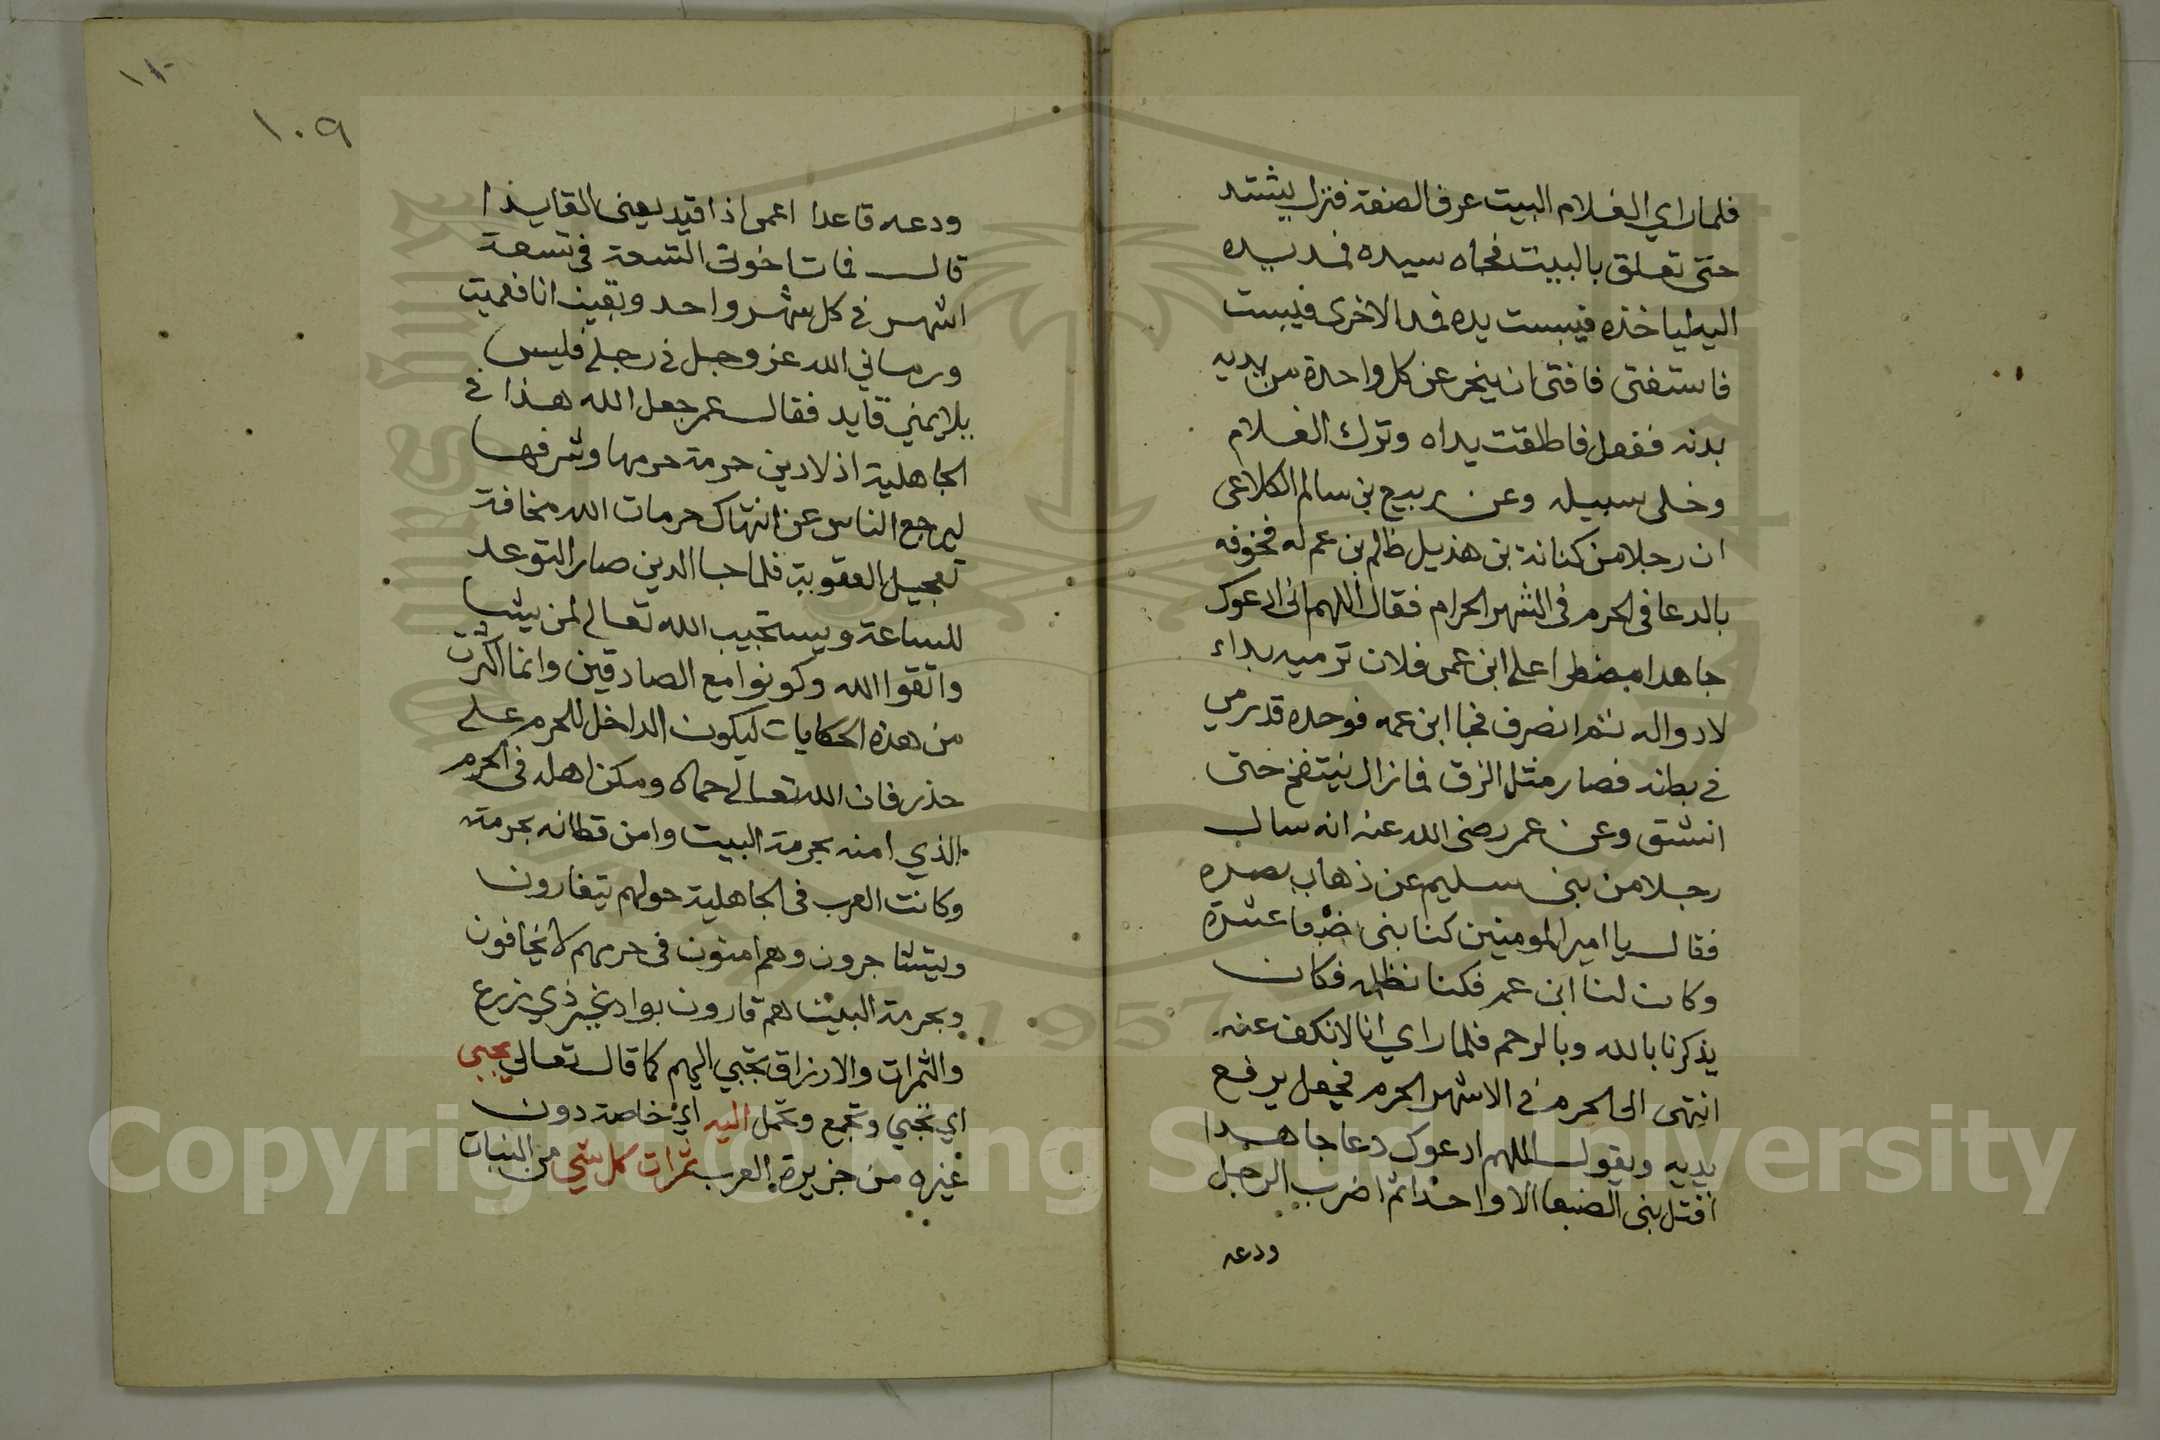 فلما راي الغلام البيت عرف الصفة فنزل يشتد
حتى تعلق بالبيت فجاه سيده فمد يده
اليه لياخذه فيبست يده فمد الاخرى فيبست
فاستفتى فافتى ان ينحر عن كل واحدة من يديه
بدنه ففعل فاطلقت يداه وترك الغلام
وخلى سبيله وعن ربيع بن سالم الكلاعى
ان رجلا من كنانة بن هذيل ظلم بن عم له فخوفه
بالدعا فى الحرم فى الشهر الحرام فقال اللهم انى ادعوك
جاهدا مضطرا على ابن عمى فلان ترميه بداء
لا دوا له ثم انصرف فجا ابن عمه فوجده قد رمي
في بطنه فصار مثل الزق فما زال ينتفخ حتى
انشق وعن عمر رضى الله عنه انه سال
رجلا من بنى سليم عن ذهاب بصره
فقال يا امير المومنين كنا بنى ضبعا عشرة
وكان لنا ابن عمر فكنا نظلمه فكان
يذكرنا بالله وبالرحم فلما راي انا لا نكف عنه
انتهى الى الحرم في الاشهر الحرم فجعل يرفع
يديه ويقول اللهم ادعوك دعا جاهدا
اقتل بنى الضبعا الا واحدا ثم اضرب الرجل
ودعه
١١٠
١٠٩
ودعه قاعدا اعمى اذا قيد يعنى القايد
قال فمات اخوتى التسعة فى تسعة
اشهر في كل شهر واحد وبقيت انا فعميت
ورماني الله عز وجل في رجلي فليس
يلايمني قايد فقال عمر جعل الله هذا في
الجاهلية اذ لا دين حرمة حرمها وشرفها
ليرجع الناس عن انتهاك حرمات الله مخافة
تعجيل العقوبة فلما جا الدين صار التوعد
للساعة ويستجيب الله تعالى لمن يشا
واتقوا الله وكونوا مع الصادقين وانما اكثرت
من هذه الحكايات ليكون الداخل للحرم على
حذر فان الله تعالى حماه ومكن اهله فى الحرم
الذي امنه بحرمة البيت وامن قطانه بحرمته
وكانت العرب فى الجاهلية حولهم يتغارون
ويتشاجرون وهم امنون فى حرمهم لا يخافون
وبحرمة البيت هم قارون بواد غير ذي زرع
والثمرات والارزاق تجبي اليهم كما قال تعالى يجبى
اي تجبي وتجمع وتحمل اليه اي خاصة دون
غيره من جزيرة العرب ثمرات كل شي من النبات
Copyright © King Saud University
1957